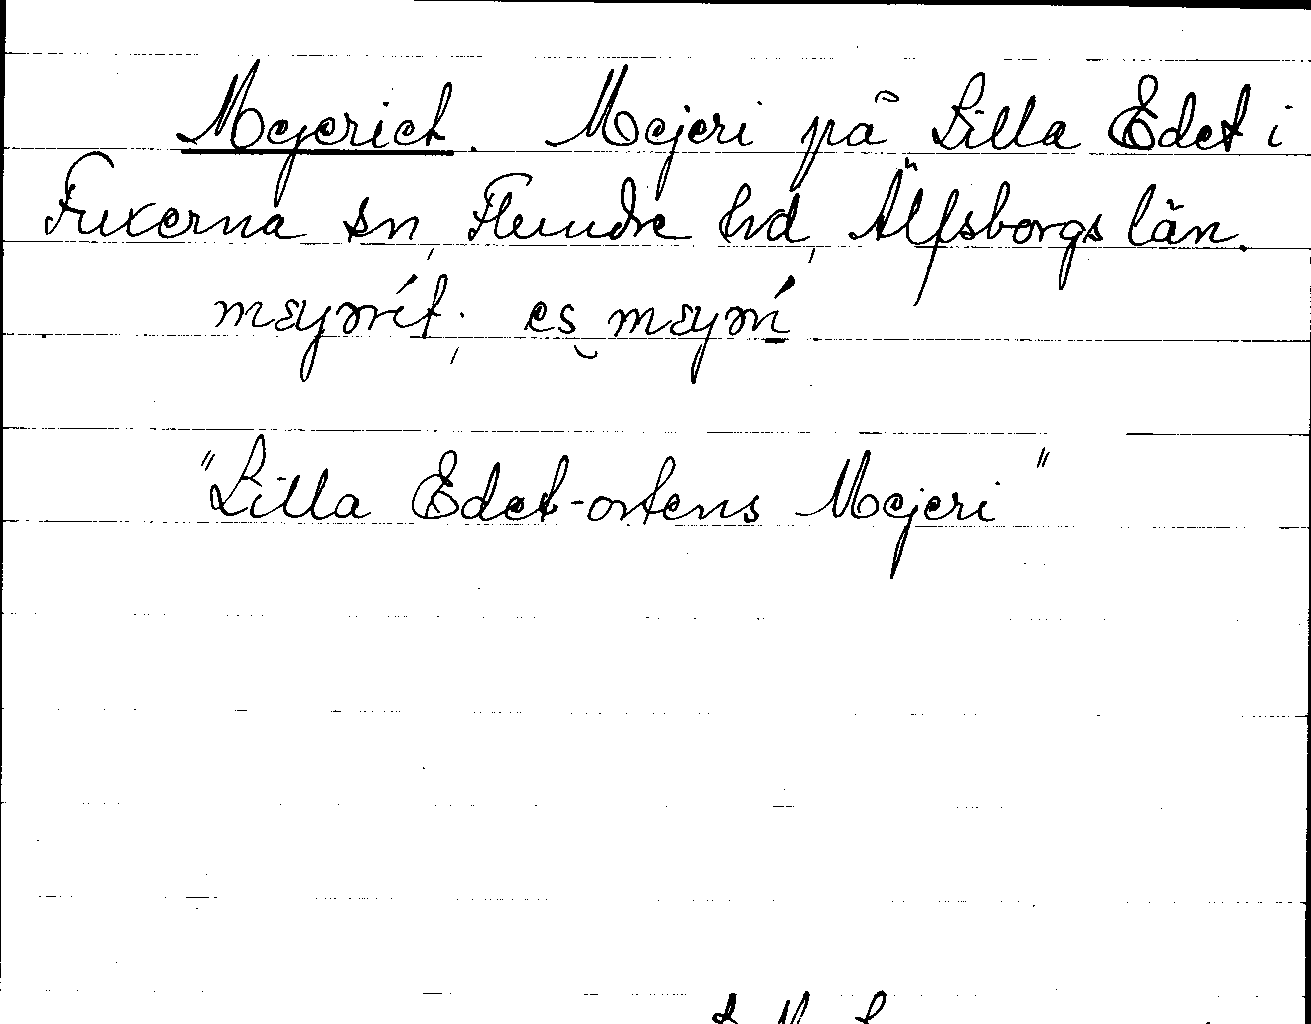 Mejeriet. Mejeri på Lilla Edet i
Fuxerna sn, Flundre hd, Älfsborgs län.
"Lilla Edet-ortens Mejeri"